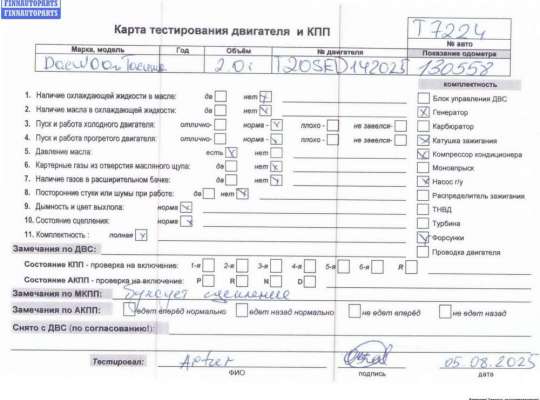 FINNAUTOPARTS
FINNAUTOPARTS
Карта тестирования двигателя и КПП
T7224
№ авто
Марка, модель Год Объём № двигателя Показание одометра
2.0i T20SED142025 130558
комплектность
1. Наличие охлаждающей жидкости в масле: да нет
2. Наличие масла в охлаждающей жидкости: да нет
3. Пуск и работа холодного двигателя: отлично- норма - плохо - не завелся-
4. Пуск и работа прогретого двигателя: отлично- норма - плохо - не завелся-
5. Давление масла: есть нет
6. Картерные газы из отверстия масляного щупа: да нет
7. Наличие газов в расширительном бачке: да нет
8. Посторонние стуки или шумы при работе: да нет
9. Дымность и цвет выхлопа: норма
10. Состояние сцепления: норма
11. Комплектность : полная
Блок управления ДВС
Генератор
Карбюратор
Катушка зажигания
Компрессор кондиционера
Моновпрыск
Насос г/у
Распределитель зажигания
ТНВД
Турбина
Форсунки
Проводка двигателя
Замечания по ДВС:
Состояние КПП - проверка на включение: 1-я 2-я 3-я 4-я 5-я 6-я R
Состояние АКПП - проверка на включение: P R N D
Замечания по МКПП: Буксует сцепление
Замечания по АКПП: едет вперёд нормально едет назад нормально не едет вперёд не едет назад
Снято с ДВС (по согласованию!):
Тестировал: 05.08.2025
ФИО подпись дата